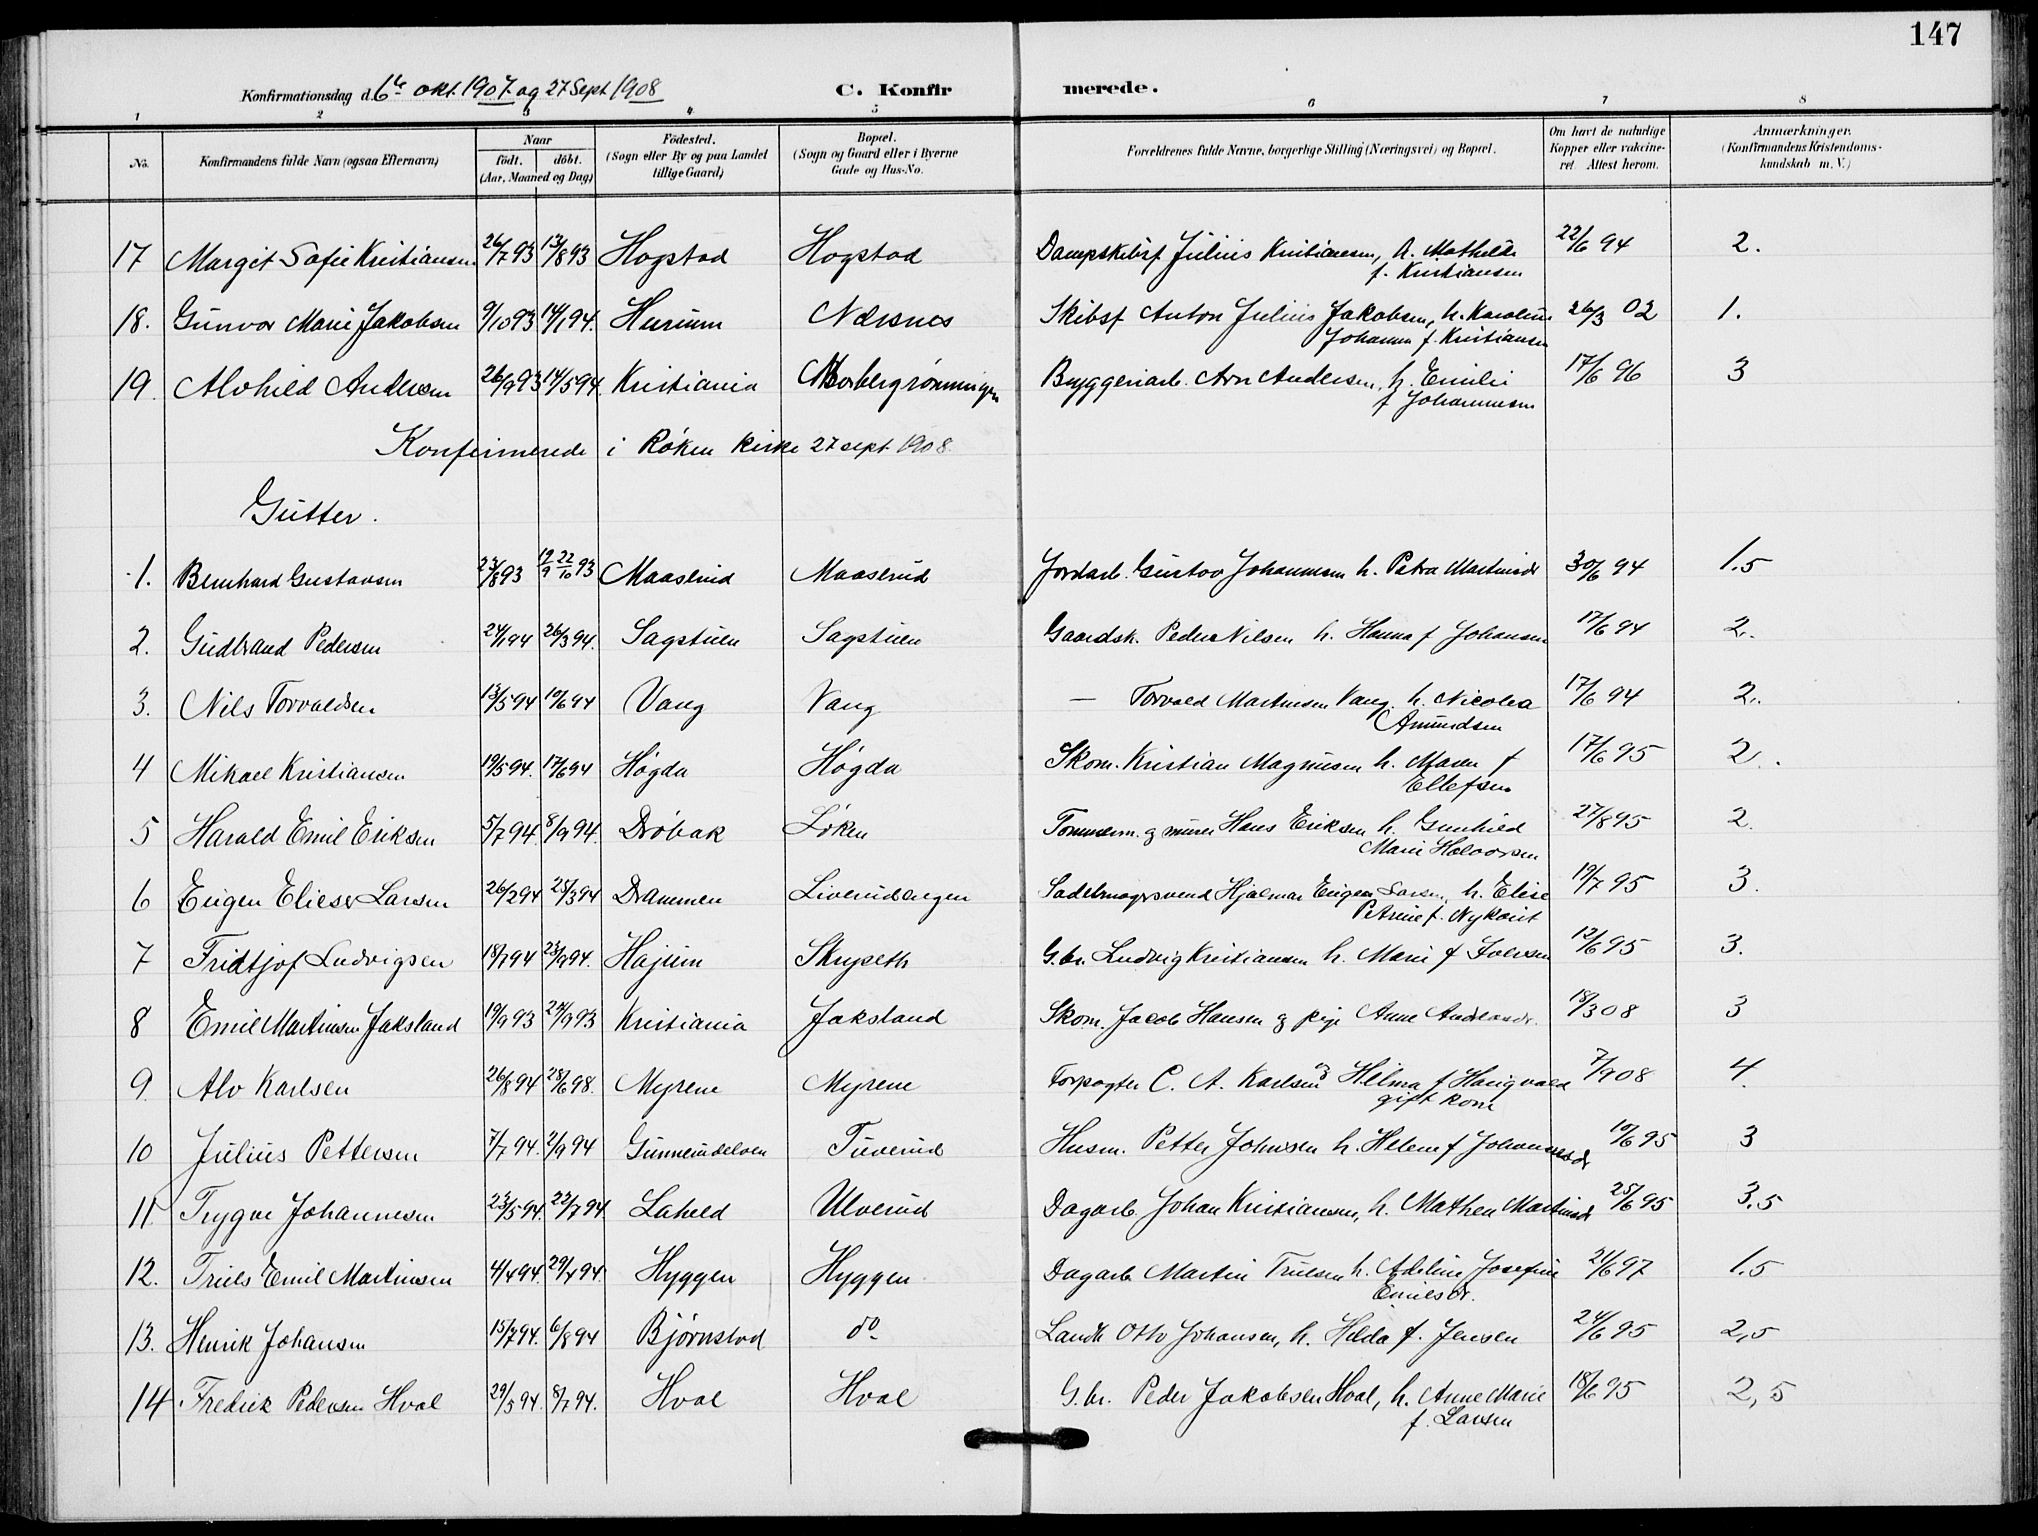 147
Konfirmationsdag d. 6te okt. 1907 og 27 Sept 1908 C. Konfirmerede.
1 2 3 4 5 6 7 8
No. Konfirmandens fulde Navn (ogsaa Efternavn) Naar födt. döbt. (Aar, Maaned og Dag) Födested. (Sogn eller By og paa Landet tillige Gaard) Bopæl. (Sogn og Gaard eller i Byerne Gade og Hus-No. Forældrenes fulde Navne, borgerlige Stilling (Næringsvei) og Bopæl. Om havt de naturlige Kopper eller vakcineret. Attest herom. Anmærkninger. (Konfirmandens Kristendomskundskab m. V.)
17 Margit Sofie Kristiansen 26/7 93 13/8 93 Hogstad Hogstad Dampskibsf. Julius Kristiansen, h. Mathilde 22/6 94 2.
f. Kristiansen
18. Gunvor Marie Jakobsen 9/10 93 14/1 94. Hurum Næsnes Skibsf Anton Julius Jakobsen, h. Karoline 26/3 02 1.
Johanne f. Kristiansen
19. Alvhild Andersen 26/9 93 14/5 94. Kristiania Bryggeriarb. Arn Andersen, h. Emilie 17/6 96 3
f Johannesen
Konfirmerede i Røken kirke 27 sept. 1908.
Gutter.
1. Bernhard Gustavsen 23/8 93 19/9 22/10 93 Maaslud Maaslud Jordarb. Gustav Johannesen h. Petra Martinsdr 30/6 94 1.5
2. Gudbrand Pedersen 24/1 94 26/3 94. Sagstuen Sagstuen Gaardsk. Peder Nilsen h. Hanna f Johansen 17/6 94 2.
3. Nils Torvaldsen 13/5 94 10/6 94 Vang Vang — Torvald Martinsen Vang. h. Nicolea 17/6 94 2.
Amundsen
4 Mikael Kristiansen 19/5 94. 17/6 94 Høgda Høgda Skom. Kristian Magnusen h. Maren f 17/6 95 2.
Ellefsen
5 Harald Emil Eriksen 5/7 94. 8/9 94. Drøbak Løken Tømmerm. og murer Hans Eriksen h. Gunhild 27/8 95 2.
Marie Halvorsen
6 Eugen Elieser Larsen 26/2 94 25/3 94 Drammen Liverudengen Sadelmagersvend Hjalmar Eugen Larsen, h. Elise 19/7 95 3.
Petrine f. Nykvist
7 Fridtjof Ludvigsen 18/7 94 23/9 94. Hajum Skryseth G.br. Ludvig Kristiansen h. Marie f Iversen 12/6 95 3.
8 Emil Martinsen Jaksland 19/9 93 24/9 93 Kristiania Jaksland Skom. Jacob Hansen og pige Anne Andersdr. 18/3 08 3
9. Alv Karlsen 26/8 94 28/6 98. Myrene Myrene Forpagter C. A. Karlsen og Helma f Haugvald 7/9 08 4.
gift kone
10 Julius Pettersen 7/7 94. 2/9 94 Gunnerudelven Tuverud Husm. Petter Johnsen h. Helene f Johannesdr 10/6 95 3
11. Trygve Johannesen 23/5 94. 22/7 94. Laheld Ulverud Dagarb. Johan Kristiansen, h. Mathea Martinsdr 25/6 95 3.5
12. Truls Emil Martinsen 4/4 94. 29/4 94. Hyggen Hyggen Dagarb Martin Trulsen h. Adeline Josefine 21/6 97 1.5
Emilsdr.
13. Henrik Johansen 15/7 94. 6/8 94 Bjørnstad do. Landh Otto Johansen, h. Hilda f. Jensen 24/6 95 2,5
14. Fredrik Pedersen Hval 29/5 94. 8/7 94. Hval Hval G.br. Peder Jakobsen Hval, h. Anne Marie 18/6 95 2,5
f. Larsen